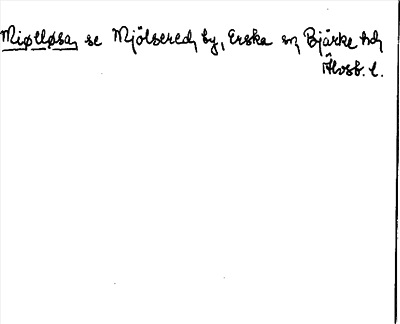 Miøtløsa, se Mjölsered, by, Erska sn, Bjärke hd,
Älvsb. l.